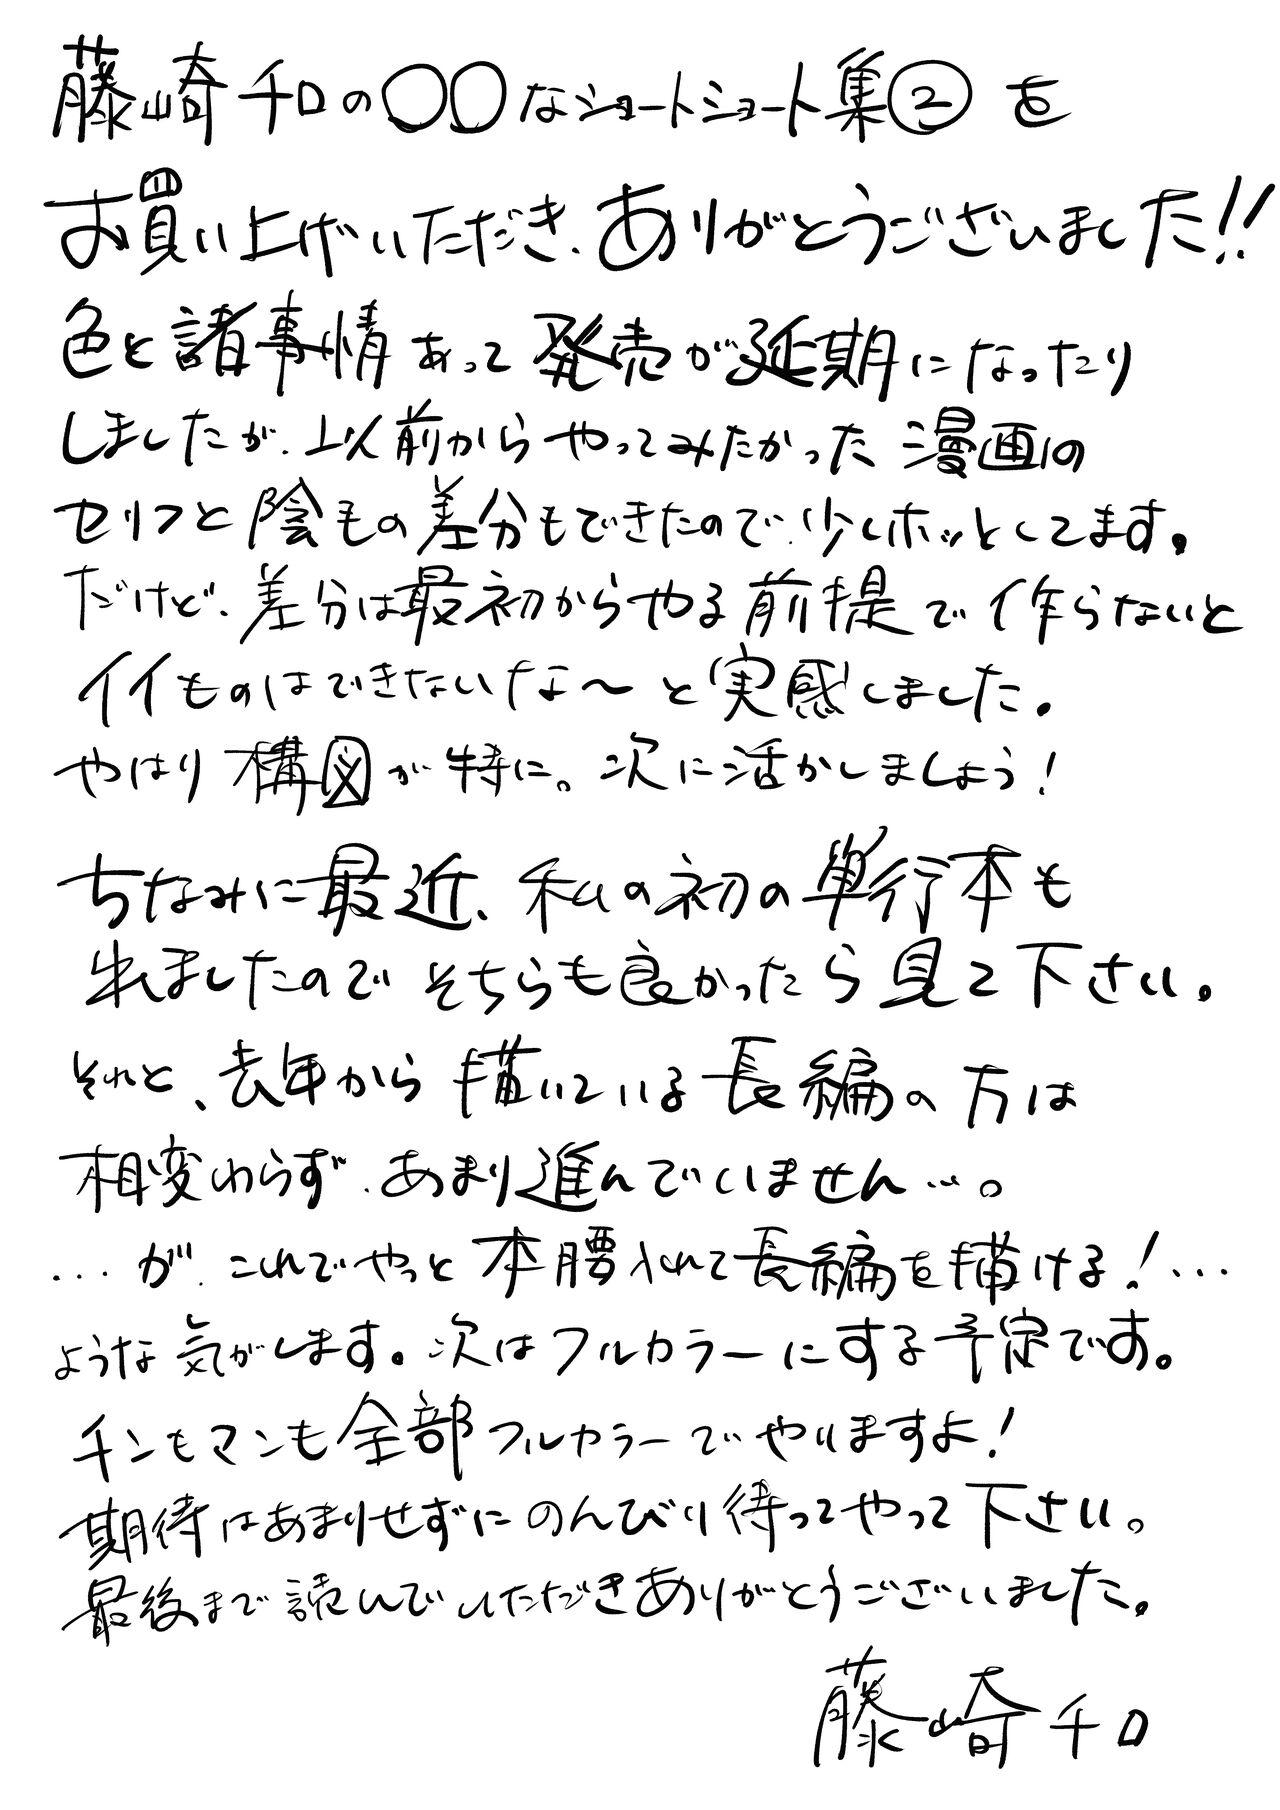 藤崎チロの○○なショートショート集②を
お買い上げいただき、ありがとうございました!!
色と諸事情あって発売が延期になったり
しましたが、以前からやってみたかった漫画の
セリフと陰毛の差分もできたので、少しホッとしてます。
だけど、差分は最初からやる前提で作らないと
イイものはできないな〜と実感しました。
やはり構図が特に。次に活かしましょう!
ちなみに最近、私の初の単行本も
出ましたのでそちらも良かったら見て下さい。
それと、去年から描いている長編の方は
相変わらず、あまり進んでいません…。
…が、これでやっと本腰入れて長編を描ける!…
ような気がします。次はフルカラーにする予定です。
チンもマンも全部フルカラーでやりますよ!
期待はあまりせずにのんびり待ってやって下さい。
最後まで読んでいただきありがとうございました。
藤崎チロ